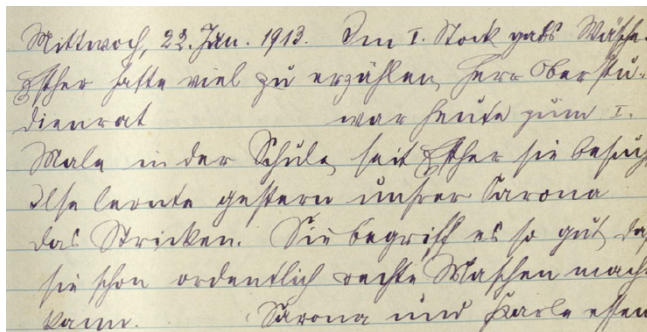 Mittwoch, 22. Jan. 1913. Im I. Stock gabs Wäsche.
Esther hatte viel zu erzählen, Herr Oberstu-
dienrat war heute zum I.
Male in der Schule, seit Esther sie besucht
Ilse lernte gestern unsrer Sarona
das Stricken. Sie begriff es so gut, daß
sie schon ordentlich rechte Maschen mach
kann. Sarona und Karle essen